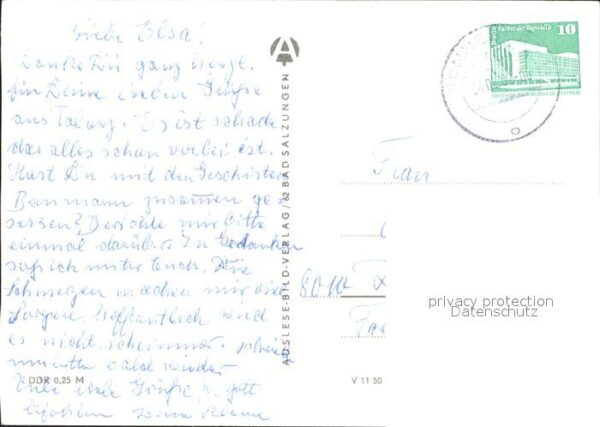 Liebe Elsa!
Danke Dir ganz herzl.
für Deine lieben Grüße
aus Tabarz. Es ist schade
das alles schon vorbei ist.
Hast Du mit den Geschwistern
Baumann zusammen ge=
sessen? Berichte mir bitte
einmal darüber. In Gedanken
saß ich unter Euch. Die
Schmerzen machen mir viel
Sorgen. Hoffentlich wird
es nicht schlimmer.
bald wieder
Viele liebe Grüße u. Gott
befohlen Deine
DDR 0,25 M
AUSLESE-BILD-VERLAG / 62 BAD SALZUNGEN
V 11 50
Palast der Republik
Berlin
10
Frau
8010
privacy protection
Datenschutz